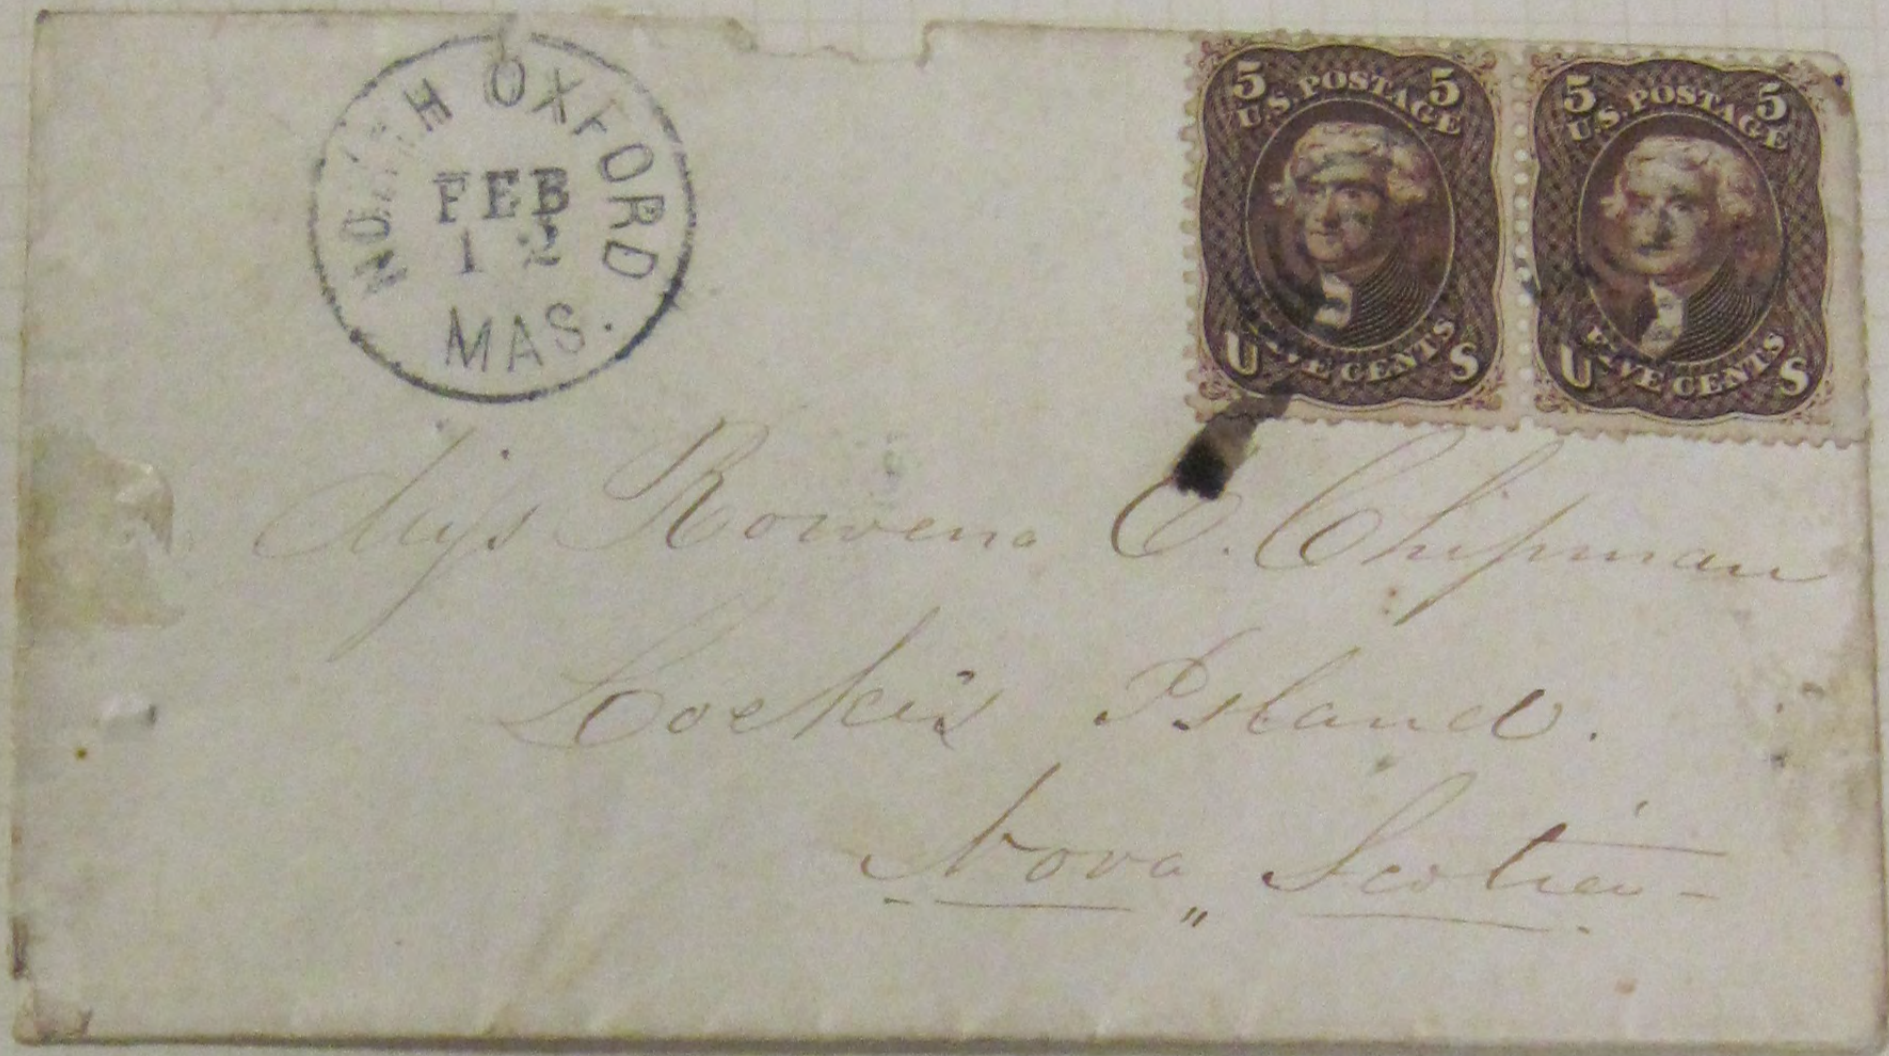 NORTH OXFORD
FEB
12
MAS.
5 5
U.S. POSTAGE
FIVE CENTS
U S
5 5
U.S. POSTAGE
FIVE CENTS
U S
Miss Rowena C. Chipman
Locke's Island.
Nova " Scotia -